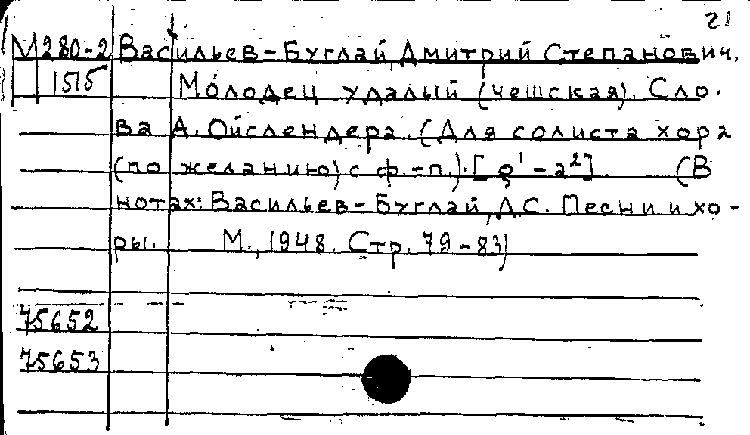 21
М280-2 Васильев-Буглай, Дмитрий Степанович.
1515 Молодец удалый (чешская). Сло-
ва А. Ойслендера. (Для солиста хора
(по желанию) с ф.-п.). [e¹ - a²]. (В
нотах: Васильев-Буглай, Д.С. Песни и хо-
ры. М., 1948. Стр. 79-83)
75652
75653